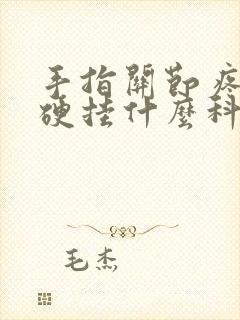 手指關節疼
硬挂什麼科
毛杰